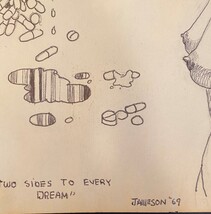 "TWO SIDES TO EVERY
DREAM"
JAMERSON '69